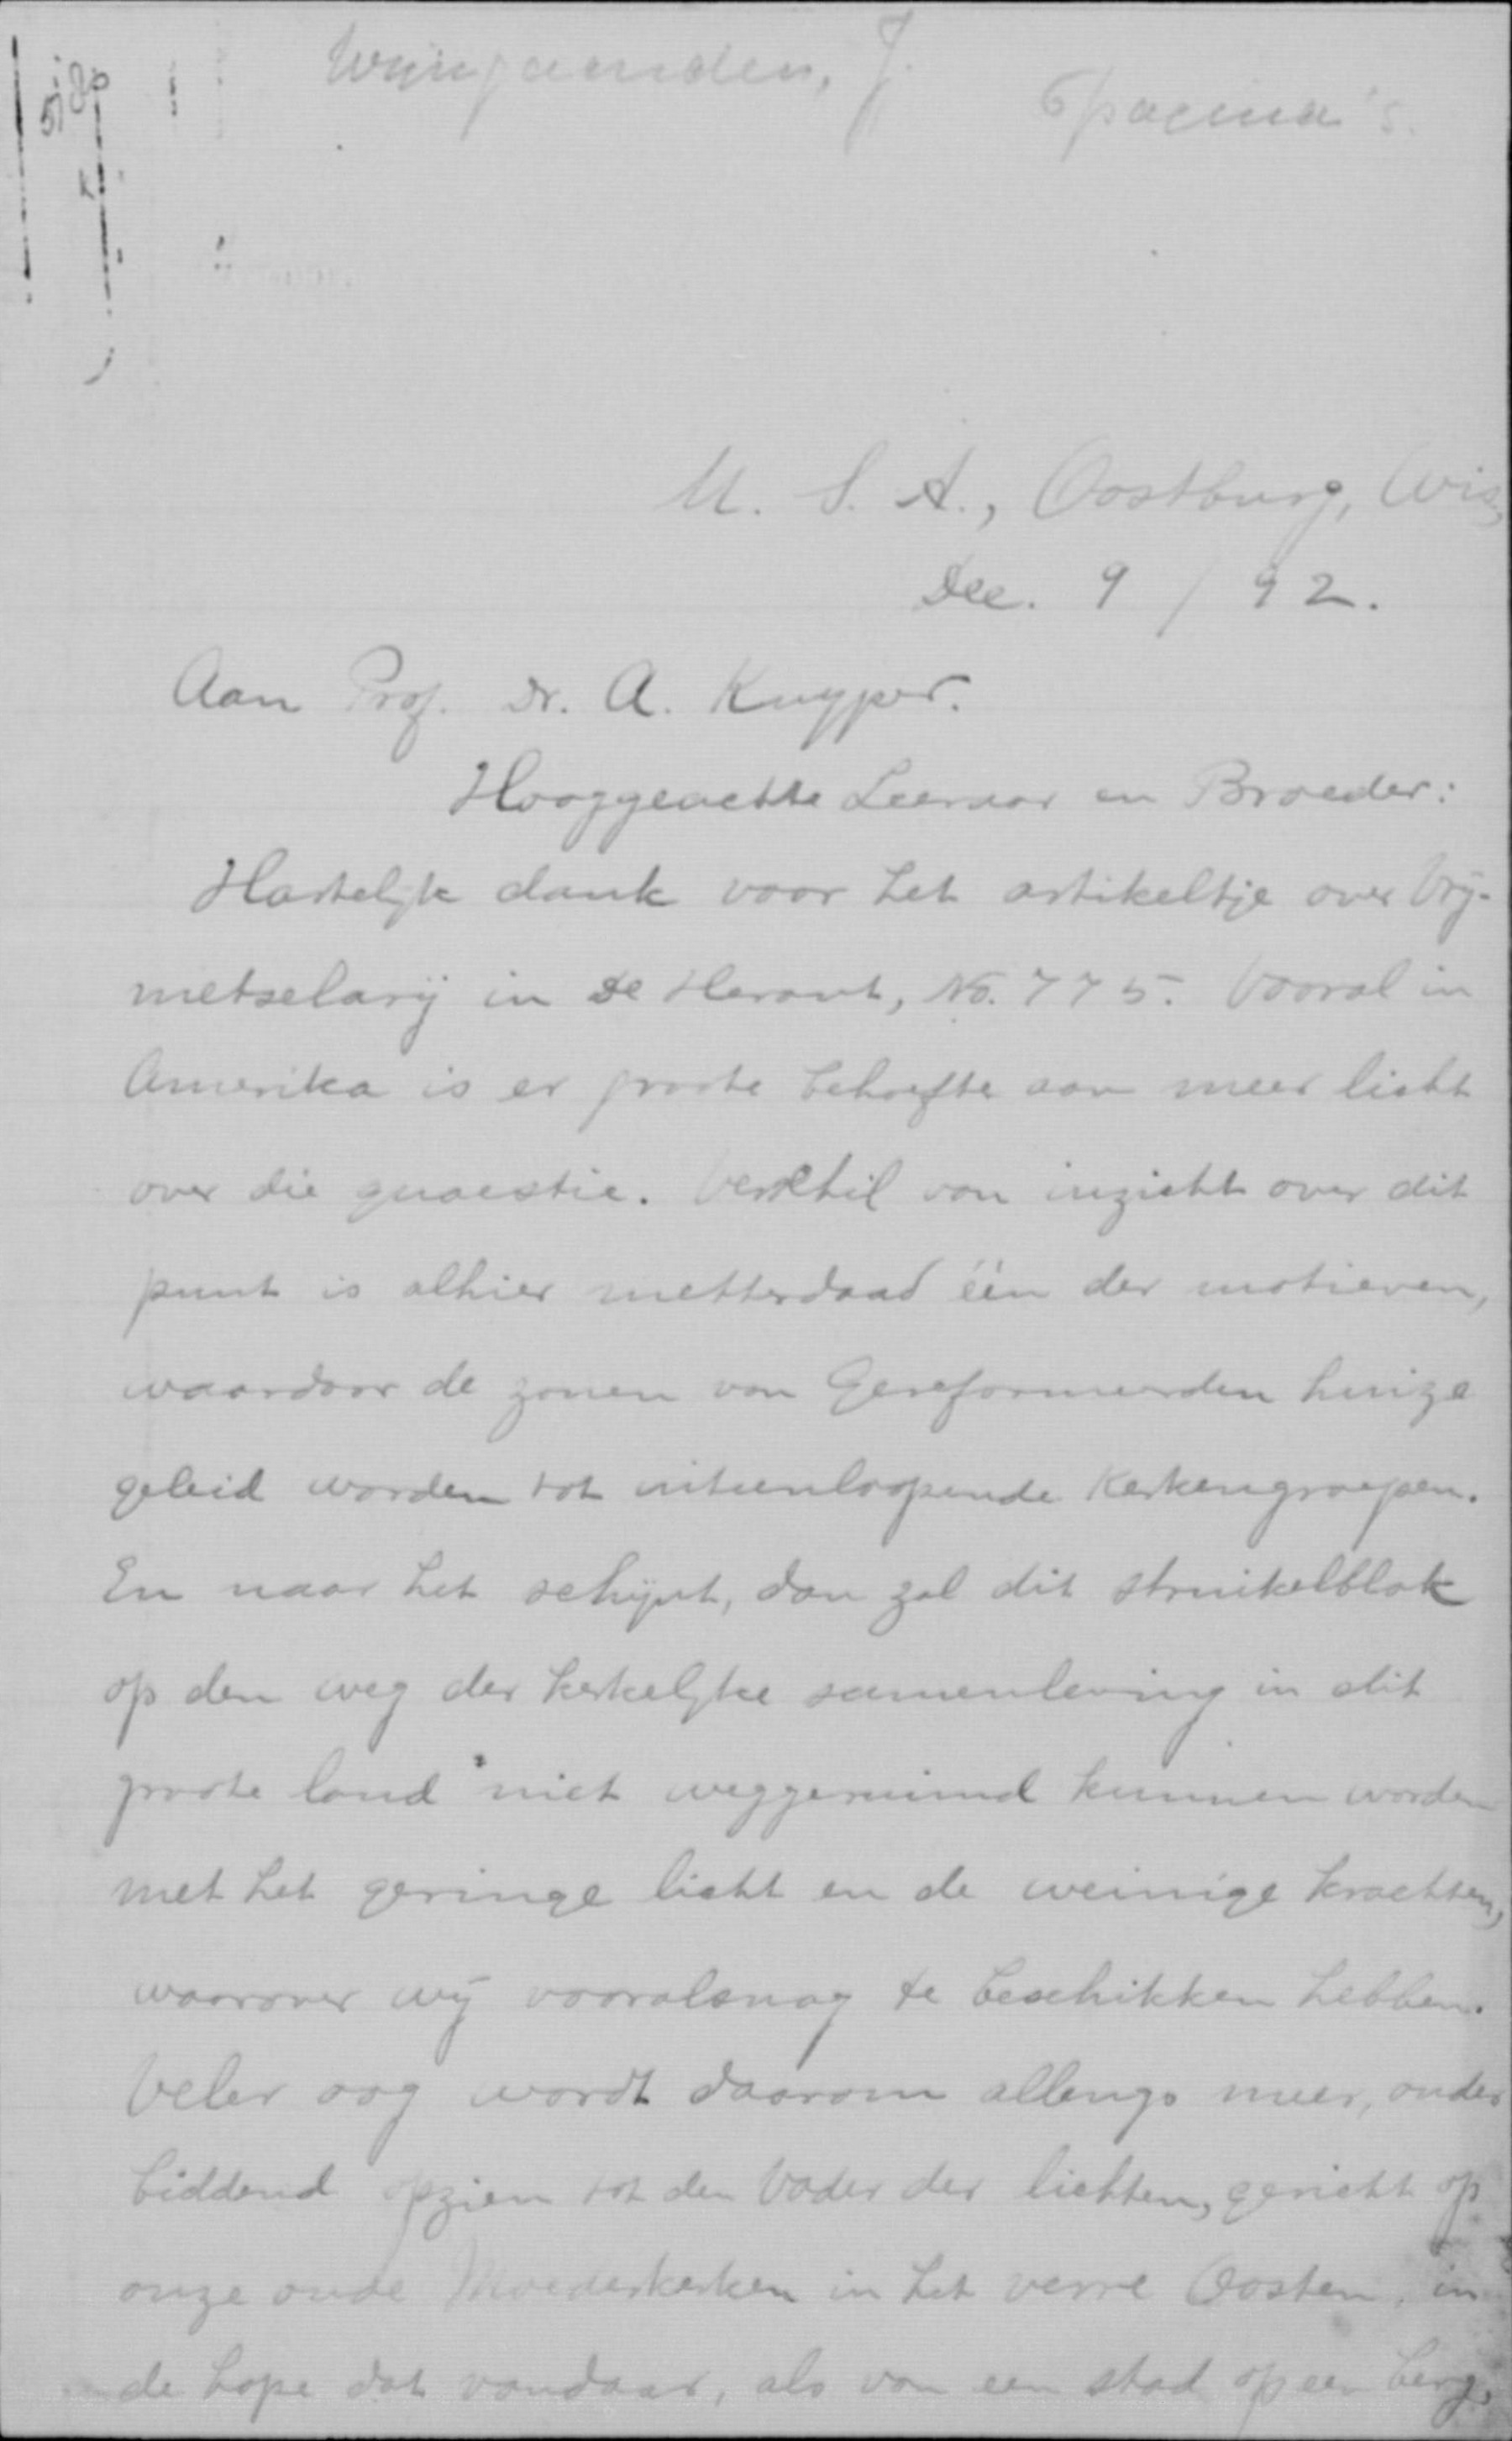 Wijngaarden, J.
6 pagina's.
U. S. A., Oostburg, Wis,
Dec. 9 / 92.
Aan Prof. Dr. A. Kuyper.
Hooggeachte Leeraar en Broeder:
Hartelijk dank voor het artikeltje over Vrij-
metselarij in De Heraut, No. 775. Vooral in
Amerika is er groote behoefte aan meer licht
over die quaestie. Verschil van inzicht over dit
punt is alhier metterdaad één der motieven,
waardoor de zonen van Gereformeerden huize
geleid worden tot uiteenloopende Kerkengroepen.
En naar het schijnt, dan zal dit struikelblok
op den weg der kerkelijke samenleving in dit
groote land niet weggeruimd kunnen worden
met het geringe licht en de weinige krachten,
waarover wij vooralsnog te beschikken hebben.
Veler oog wordt daarom allengs meer, onder
biddend opzien tot den Vader der lichten, gericht op
onze oude Moederkerken in het verre Oosten, in
de hope dat vandaar, als van een stad op een berg,